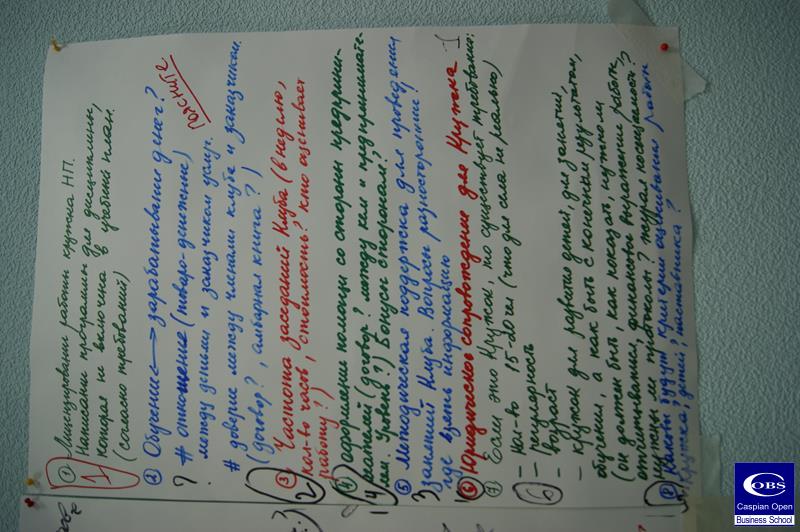 ① Лицензировании работы кружка НП.
Написании программы для дисциплины,
которая не включена в учебный план.
(согласно требований)
1
② Обучение ↔ зарабатывание денег?
поясните
? # отношение (товаро-денежные)
между детьми и заказчиком услуг.
# доверие между членами клуба и заказчиком.
(договор?, амбарная книга?)
③ Частота заседаний Клуба (в неделю,
кол-во часов, стоимость? кто оценивает
работу?)
2
④ оформление помощи со стороны предприни-
мателей (договор? между кем и предпринимате-
лем. Уровень?) Бонусы сторонам?
4
⑤ методическая поддержка для проведения
занятий Клуба. Вопросы разносторонние!
где взять информацию
3
⑥ Юридическое сопровождение для Кружка
⑦ Если это Кружок, но существует требования:
- кол-во 15-20 чел (что для села не реально)
- регулярность
- возраст
- кружок для развития детей, для занятий,
обучения, а как быть с конечным результатом,
(он должен быть, как показат, путном
отчитываться, финансовы выражении работы,
нужны ли протоколы? журнал посещаемости?)
6
⑧ Каковы будут критерии оценивания работы
Кружка, детей, наставника?
OBS
Caspian Open
Business School